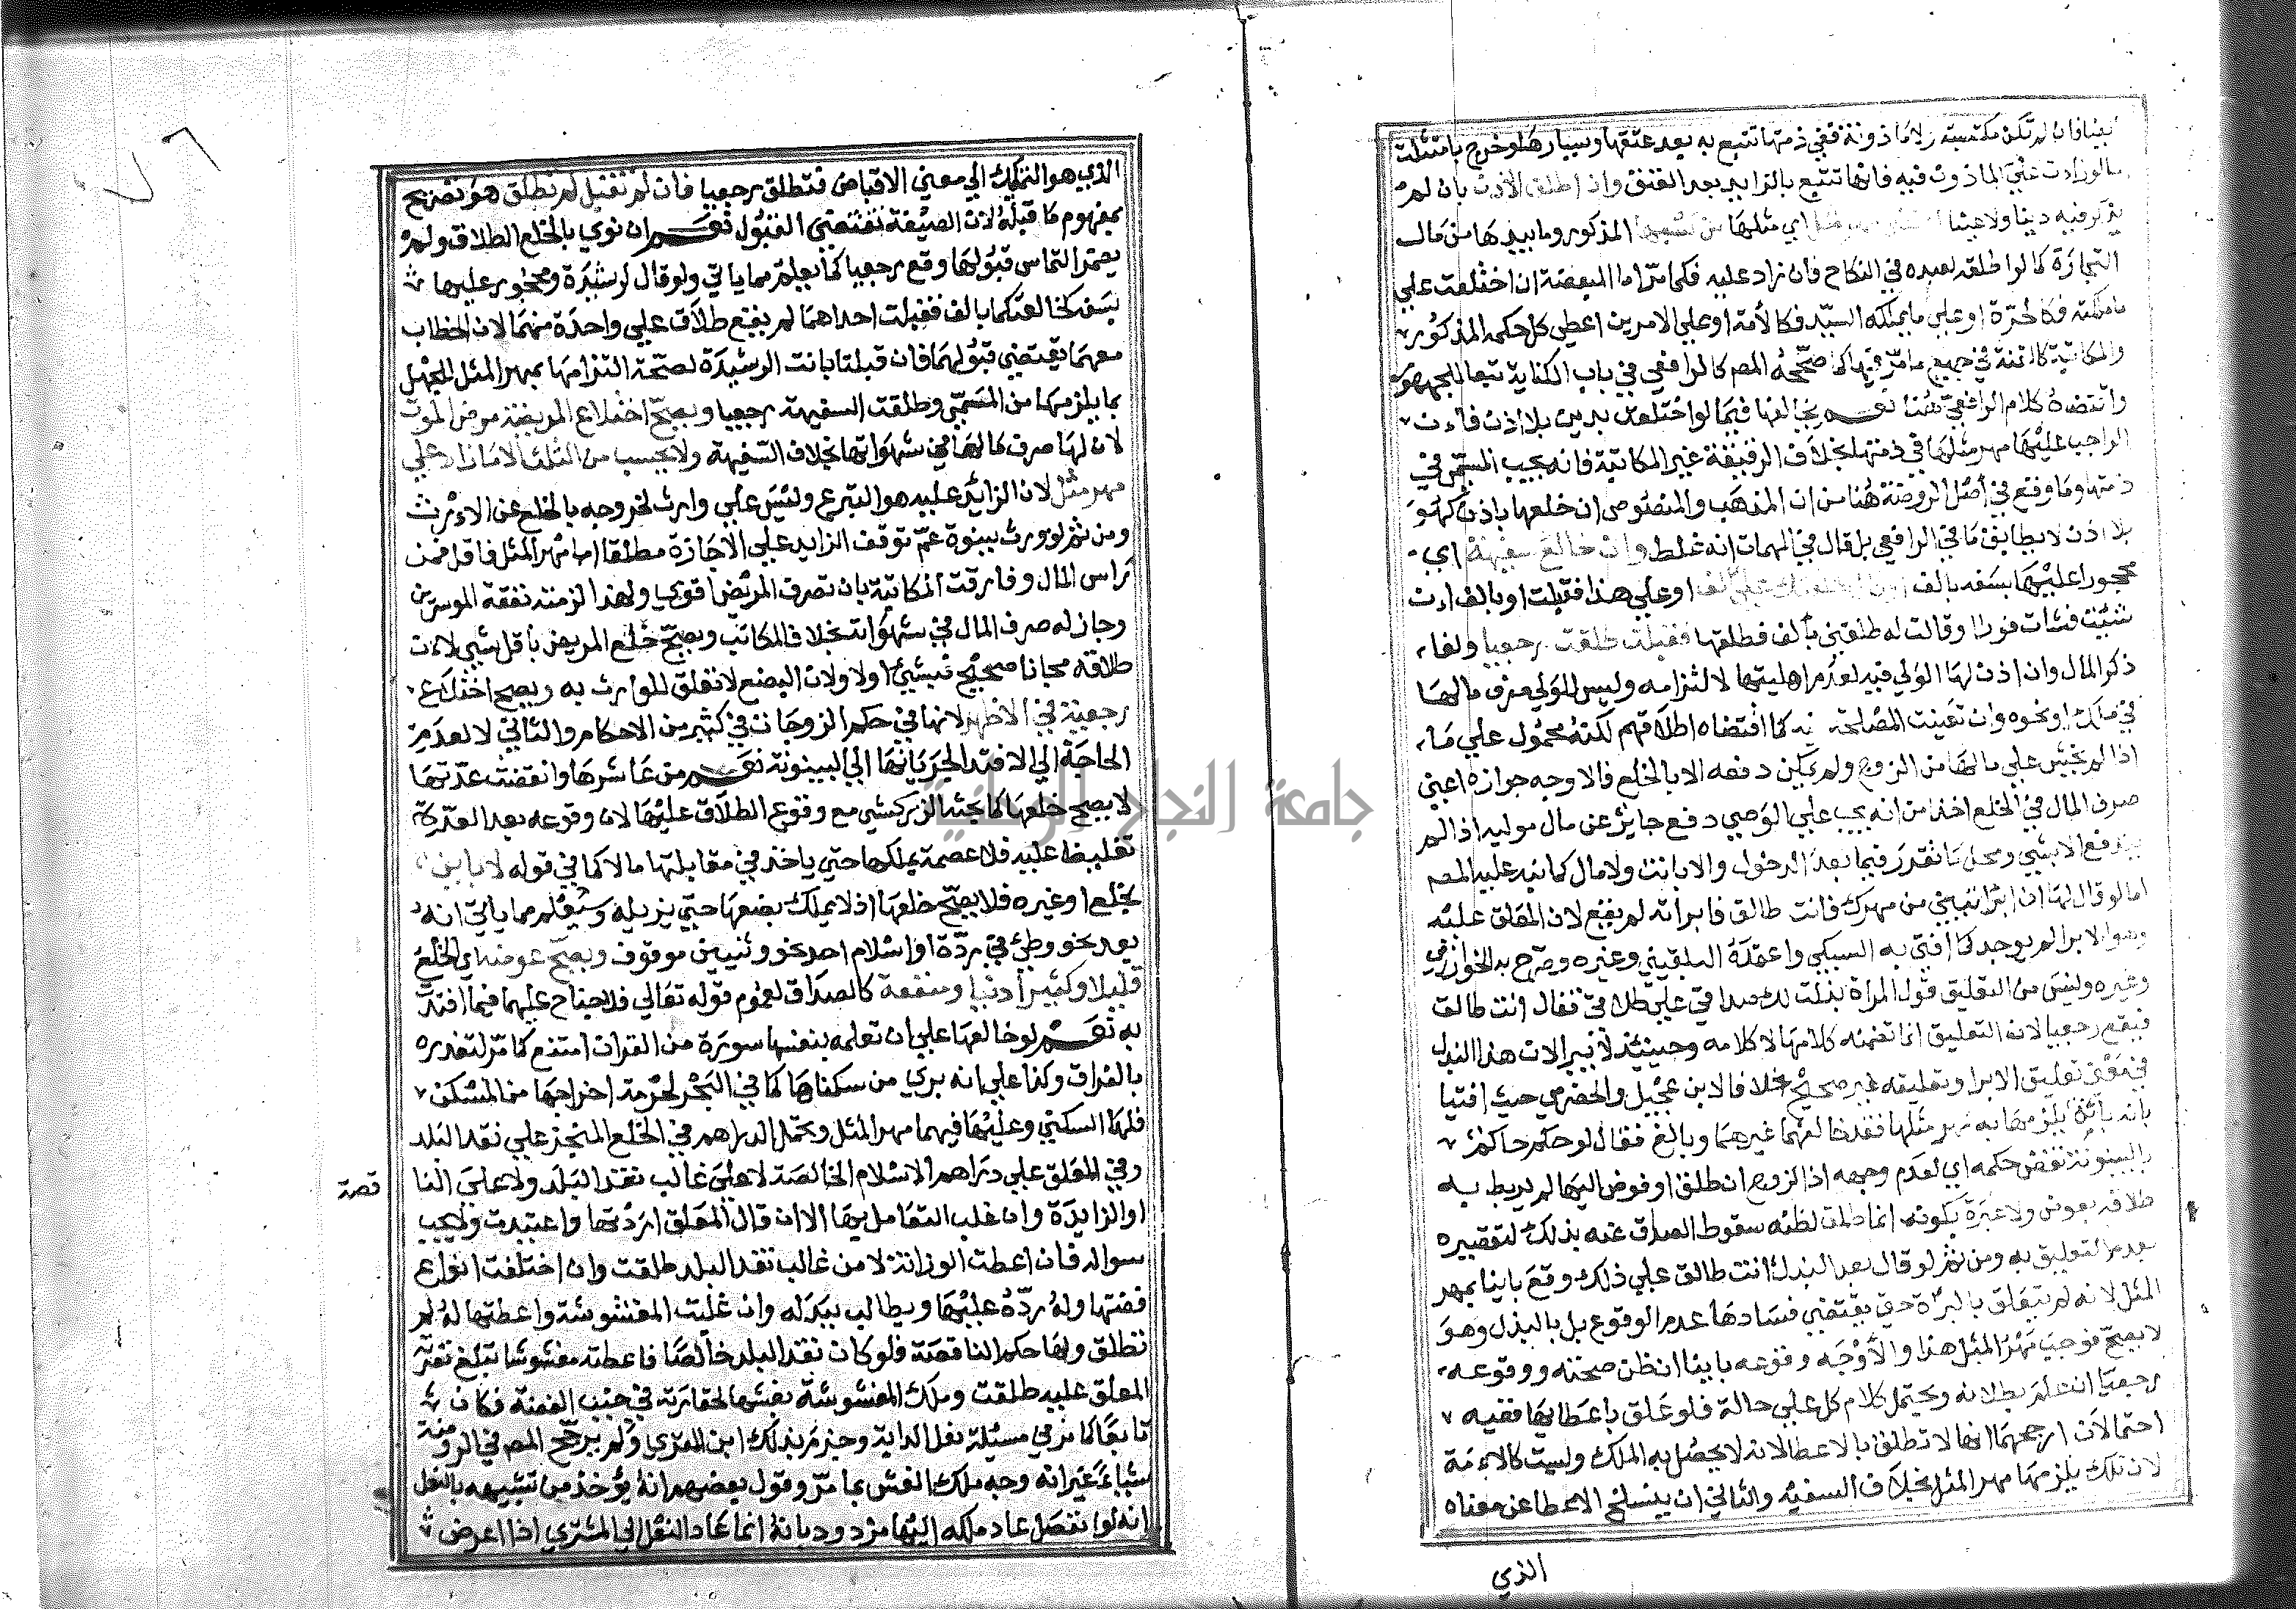 بيدها فان لم تكن مكتسبة ولا ماذونة ففي ذمتها تتبع به بعد عتقها ويسارها وخرج بامتثلت
ما لو زادت على الماذون فيه فانها تتبع بالزايد بعد العتق وان اطلق الاذن بان لم
يذكر فيه دينا ولا عينا مثل اي مثلها من كسبها المذكور وما بيدها من مال
التجارة كما لو اطلقه لعبده في النكاح فان زاد عليه فكما مر اما المبعضة ان اختلعت علي
ما ملكته فكالحرة او علي ما يملكه السيد فكالأمة او علي الامرين اعطي كل حكمه المذكور
والمكاتبة كالقنة في جميع ما مر فيها كما صححه المص كالرافعي في باب الكتابة تبعا للجمهور
واقتضاه كلام الرافعي هنا نعم يخالفها فيما لو اختلعت بدين بلا اذن فان
الواجب عليها مهر مثلها في ذمتها بخلاف الرقيقة غير المكاتبة فانه يجب المسمي في
ذمتها وما وقع في اصل الروضة هنا من ان المذهب والمنصوص ان خلعها باذن كهو
بلا اذن لا يطابق ما في الرافعي بل قال في المهمات انه غلط وان خالع سفيهة اي
محجورا عليها بسفه بالف علي الف او علي هذا فقبلت او بالف ان
شئت فشات فورا او قالت له طلقني بالف فطلقها فقبلت طلقت رجعيا ولغا
ذكر المال وان اذن لها الولي فيه لعدم اهليتها لالتزامه وليس للولي صرف مالها
في ذلك او نحوه وان تعينت المصلحة فيه كما اقتضاه اطلاقهم لكنه محمول علي ما
اذا لم يخش علي مالها من الزوج ولم يمكن دفعه الا بالخلع فالاوجه جوازه اعني
صرف المال في الخلع اخذا من انه يجب علي الوصي دفع جاير عن مال موليه اذا لم
يندفع الا بشي ومحل ما تقدر فيما بعد الدخول والا بانت ولا مال كما نبه عليه المص
اما لو قال لها ان ابراتيني من مهرك فانت طالق فابراته لم يقع لان المعلق عليه
وهو الابرا لم يوجد كما افتي به السبكي واعتمده البلقيني وغيره وصرح به الخوارزمي
وغيره وليس من التعليق قول المراة بذلت لك صداقي علي طلاقي فقال انت طالق
فيقع رجعيا لان التعليق انما تضمنه كلامها لا كلامه وحينئذ لا يبرا لان هذا البذل
في معني تعليق الابرا وتعليقه غير صحيح خلافا لابن عجيل والحضرمي حيث افتيا
بانه باين يلزمها به مهر مثلها فقد خالفهما غيرهما وبالغ فقال لو حكم حاكم
بالبينونة نقض حكمه اي لعدم وجهه اذ الزوج ان طلق او فوض اليها لم يربط به
طلاقه بعوض ولا عبرة بكونه انما طلق لظنه سقوط الصداق عنه بذلك لتقصيره
بعدم التعليق به ومن ثم لو قال بعد البذل انت طالق علي ذلك وقع باينا بمهر
المثل لانه لم يتعلق بالبراة حتي يقتضي فسادها عدم الوقوع بل بالبذل وهو
لا يصح فوجب مهر المثل هذا والاوجه وقوعه باينا ان ظن صحته ووقوعه
رجعيا ان علم بطلانه ويحتمل كلام كل علي حالة فلو علق باعطايها ففيه
احتمالان ارجحهما انها لا تطلق بالاعطا لانه لا يحصل به الملك وليست كالامة
لان تلك يلزمها مهر المثل بخلاف السفيه والثاني ان ينسلخ الاعطا عن معناه
الذي
الذي هو التمليك الي معني الاقباض فتطلق رجعيا فان لم تقبل لم تطلق هو تصريح
بمفهوم ما قبله لان الصيغة تقتضي القبول نعم ان نوي بالخلع الطلاق ولم
يضمر التماس قبولها وقع رجعيا كما يعلم مما ياتي ولو قال لرشيدة ومحجور عليها
بسفه خالعتكما بالف فقبلت احداهما لم يقع طلاق علي واحدة منهما لان الخطاب
معهما يقتضي قبولهما فان قبلتا بانت الرشيدة لصحة التزامها بمهر المثل للجهل
بما يلزمها من المسمي وطلقت السفيهة رجعيا ويصح اختلاع المريضة مرض الموت
لان لها صرف مالها في شهواتها بخلاف السفيهة ولا يحسب من الثلث الا ما زاد علي
مهر مثل لان الزايد عليه هو التبرع وليس علي وارث لخروجه بالخلع عن الارث
ومن ثم لو ورث ببنوة عم توقف الزايد علي الاجازة مطلقا اما مهر المثل فاقل فمن
راس المال وفارقت المكاتبة بان تصرف المريض اقوي ولهذا لزمته نفقة الموسرين
وجاز له صرف المال في شهواته بخلاف المكاتب ويصح خلع المريض باقل شيي لان
طلاقه مجانا صحيح فبشيئ اولا ولان البضع لا تعلق للوارث به ويصح اختلاع
رجعية في الاظهر لانها في حكم الزوجات في كثير من الاحكام والثاني لا لعدم
الحاجة الي الافتدا لجريانها الي البينونة نعم من عاشرها وانقضت عدتها
لا يصح خلعها كما بحثه الزركشي مع وقوع الطلاق عليها لان وقوعه بعد العدة
تغليظا عليه فلا عصمة يملكها حتي ياخذ في مقابلتها مالا كما في قوله لا باين
بخلع او غيره فلا يصح خلعها اذ لا يملك بضعها حتي يزيله وسيعلم مما ياتي انه
بعد نحو وطئ في ردة او اسلام احد نحو وثنيين موقوف ويصح عوضه اي الخلع
قليلا وكثيرا دينا ومنفعة كالصداق لعموم قوله تعالي فلا جناح عليهما فيما افتدت
به نعم لو خالعها علي ان تعلمه بنفسها سورة من القران امتنع كما مر لتعذره
بالفراق وكذا علي انه بري من سكناها كما في البحر لحرمة اخراجها من المسكن
فلها السكني وعليها فيهما مهر المثل ويحمل الدراهم في الخلع المنجز علي نقد البلد
وفي المعلق علي دراهم الاسلام الخالصة لا علي غالب نقد البلد ولا علي النا
قصة
او الزايدة وان غلب التعامل بها الا ان قال المعلق اردتها واعتيدت ولا يجب
سواله فان اعطت الوازنة لا من غالب نقد البلد طلقت وان اختلفت انواع
فضتها وله رده عليها ويطالب ببدله وان غلبت المغشوشة واعطتها له لم
تطلق ولها حكم الناقصة فلو كان نقد البلد خالصا فاعطته مغشوشا تبلغ نقرته
المعلق عليه طلقت وملك المغشوشة بغشها لحقارته في جنب الفضة فكان
تابعا كما مر في مسئلة نعل الداية وجزم بذلك ابن المقري ولم يرجح المص في الروضة
شيا غير انه وجه ملك الغش بما مر وقول بعضهم انه يؤخذ من تشبيهه بالنعل
انه لو انفصل عاد ملكه اليها مردود بانه انما عاد النعل الي المشتري اذا اعرض